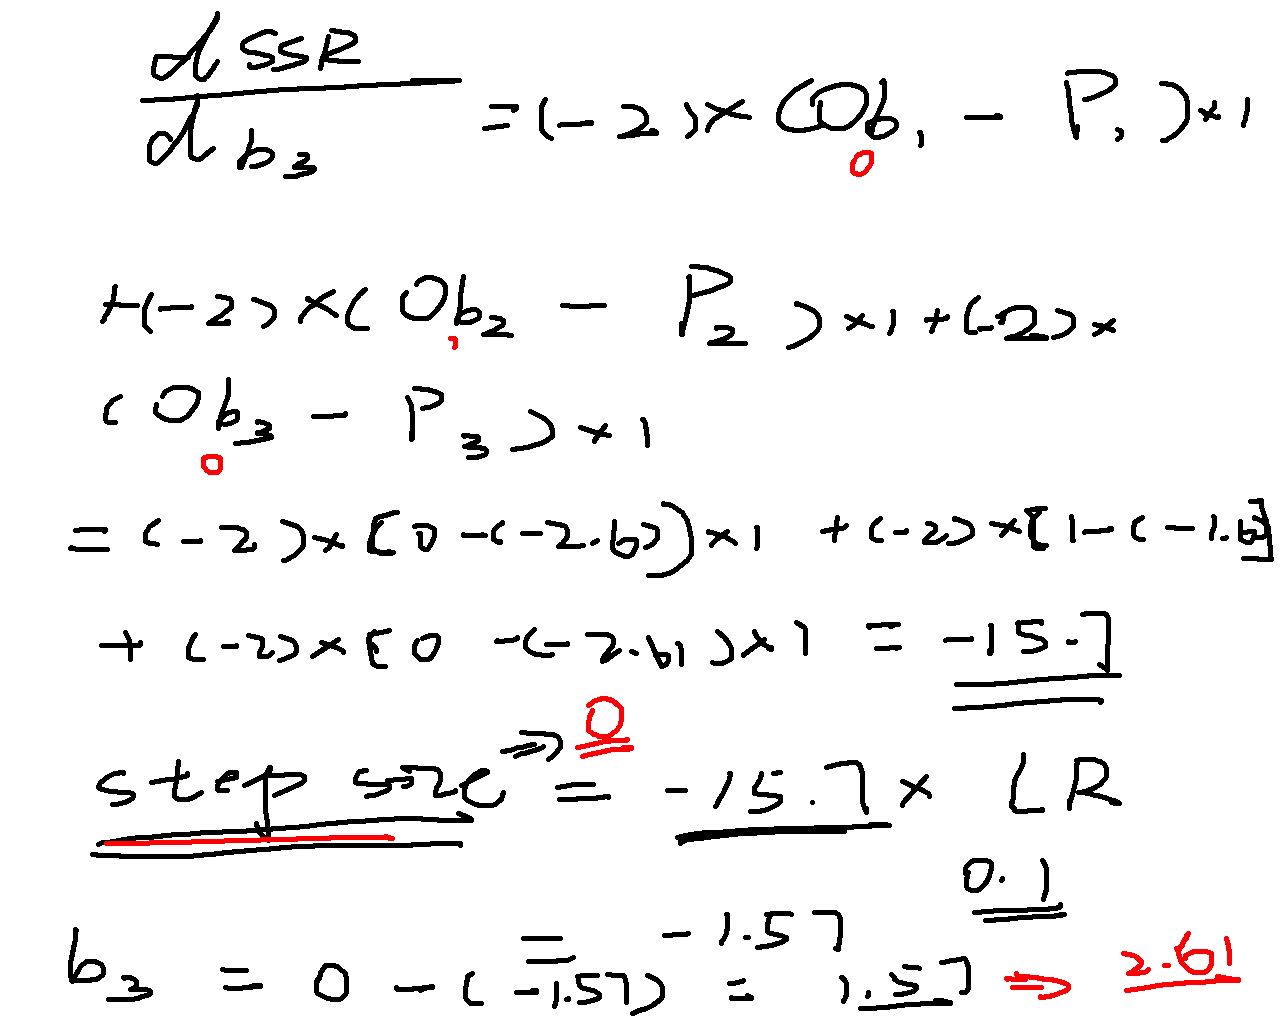 d SSR
d b3
= (-2) × (Ob1 - P1) × 1
0
+(-2) × (Ob2 - P2) × 1 + (-2) ×
1
(Ob3 - P3) × 1
0
= (-2) × [0 - (-2.6)) × 1 + (-2) × [1 - (-1.6]
+ (-2) × [0 - (-2.61) × 1 = -15.7
step size ⇒ 0 = -15.7 × LR
0.1
= -1.57
b3 = 0 - (-1.57) = 1.57 ⇒ 2.61